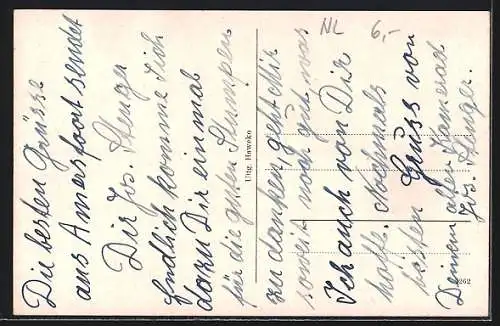 Die besten Grüsse
aus Amersfoort sendet
Dir Jos. Stenger
Endlich komme ich
dazu Dir einmal
für die guten Stumpen
zu danken, geht mir
soweit noch gut was
Ich auch von Dir
hoffe. Nochmals
besten Gruss von
Deinem alten Kamerad
Jos. Stenger.
NL 6,-
Uitg. Haweko
262